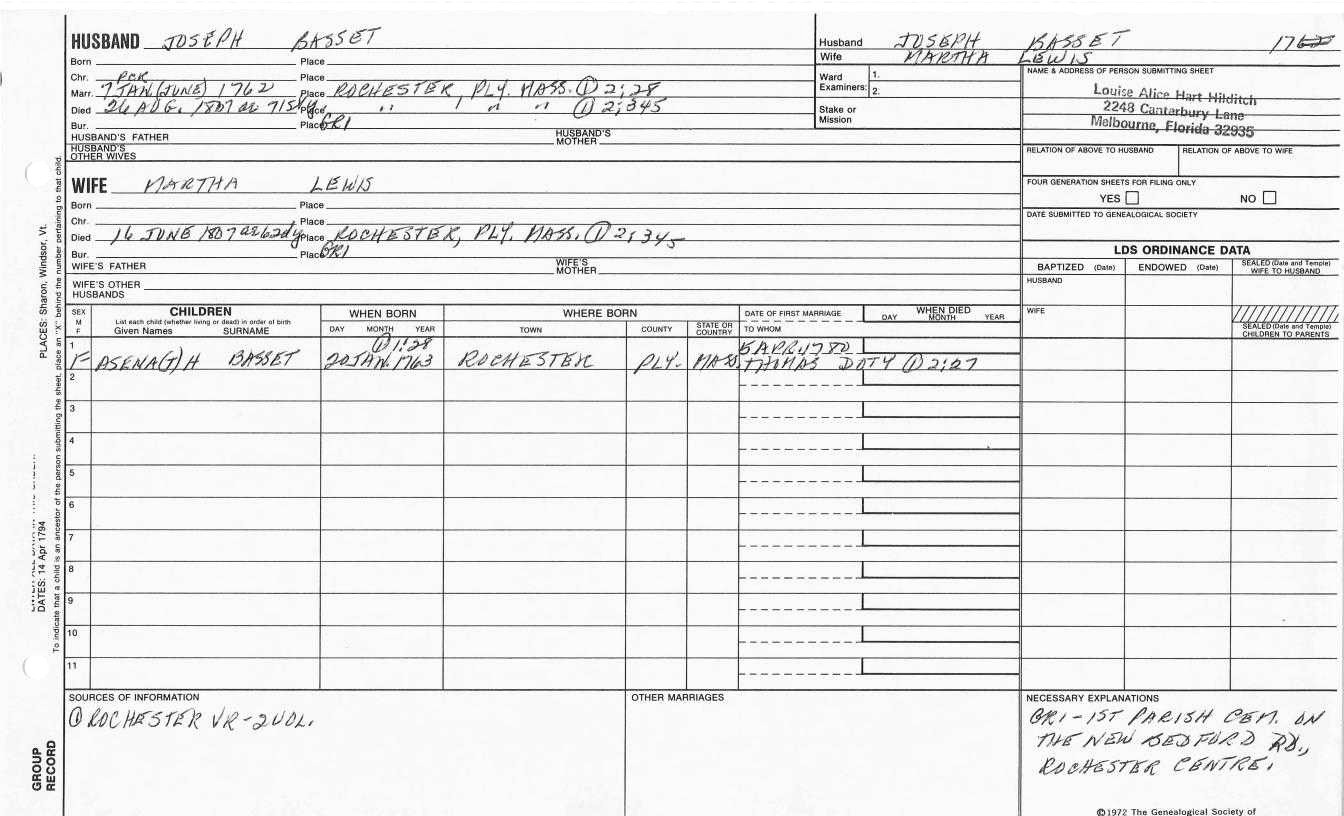 HUSBAND JOSEPH BASSET
Born Place
Chr. PCR Place
Marr. 7 JAN. (JUNE) 1762 Place ROCHESTER PLY. MASS. ① 2:28
Died 26 AUG. 1807 ae 71 5dy Place " " " ① 2:345
Bur. Place GR1
HUSBAND'S FATHER HUSBAND'S MOTHER
HUSBAND'S OTHER WIVES
WIFE MARTHA LEWIS
Born Place
Chr. Place
Died 16 JUNE 1807 ae 62dy Place ROCHESTER, PLY. MASS. ① 2:345
Bur. Place GR1
WIFE'S FATHER WIFE'S MOTHER
WIFE'S OTHER HUSBANDS
Husband JOSEPH BASSET 1762
Wife MARTHA LEWIS
Ward Examiners: 1. 2.
Stake or Mission
NAME & ADDRESS OF PERSON SUBMITTING SHEET
Louise Alice Hart Hilditch
2248 Canterbury Lane
Melbourne, Florida 32935
RELATION OF ABOVE TO HUSBAND RELATION OF ABOVE TO WIFE
FOUR GENERATION SHEETS FOR FILING ONLY
YES NO
DATE SUBMITTED TO GENEALOGICAL SOCIETY
LDS ORDINANCE DATA
BAPTIZED (Date) ENDOWED (Date) SEALED (Date and Temple) WIFE TO HUSBAND
HUSBAND
WIFE
SEALED (Date and Temple) CHILDREN TO PARENTS
SEX M F
CHILDREN
List each child (whether living or dead) in order of birth
Given Names SURNAME
WHEN BORN
DAY MONTH YEAR
WHERE BORN
TOWN COUNTY STATE OR COUNTRY
DATE OF FIRST MARRIAGE
TO WHOM
WHEN DIED
DAY MONTH YEAR
1 ① 1:28 5 APR. 1780
F ASENA(T)H BASSET 20 JAN. 1763 ROCHESTER PLY. MASS. THOMAS DOTY ① 2:27
2
3
4
5
6
7
8
9
10
11
SOURCES OF INFORMATION
① ROCHESTER VR-2VOL.
OTHER MARRIAGES
NECESSARY EXPLANATIONS
GR1-1ST PARISH CEM. ON
THE NEW BEDFORD RD.,
ROCHESTER CENTRE.
©1972 The Genealogical Society of
PLACES: Sharon, Windsor, Vt.
DATES: 14 Apr 1794
To indicate that a child is an ancestor of the person submitting the sheet, place an "X" behind the number pertaining to that child.
GROUP
RECORD